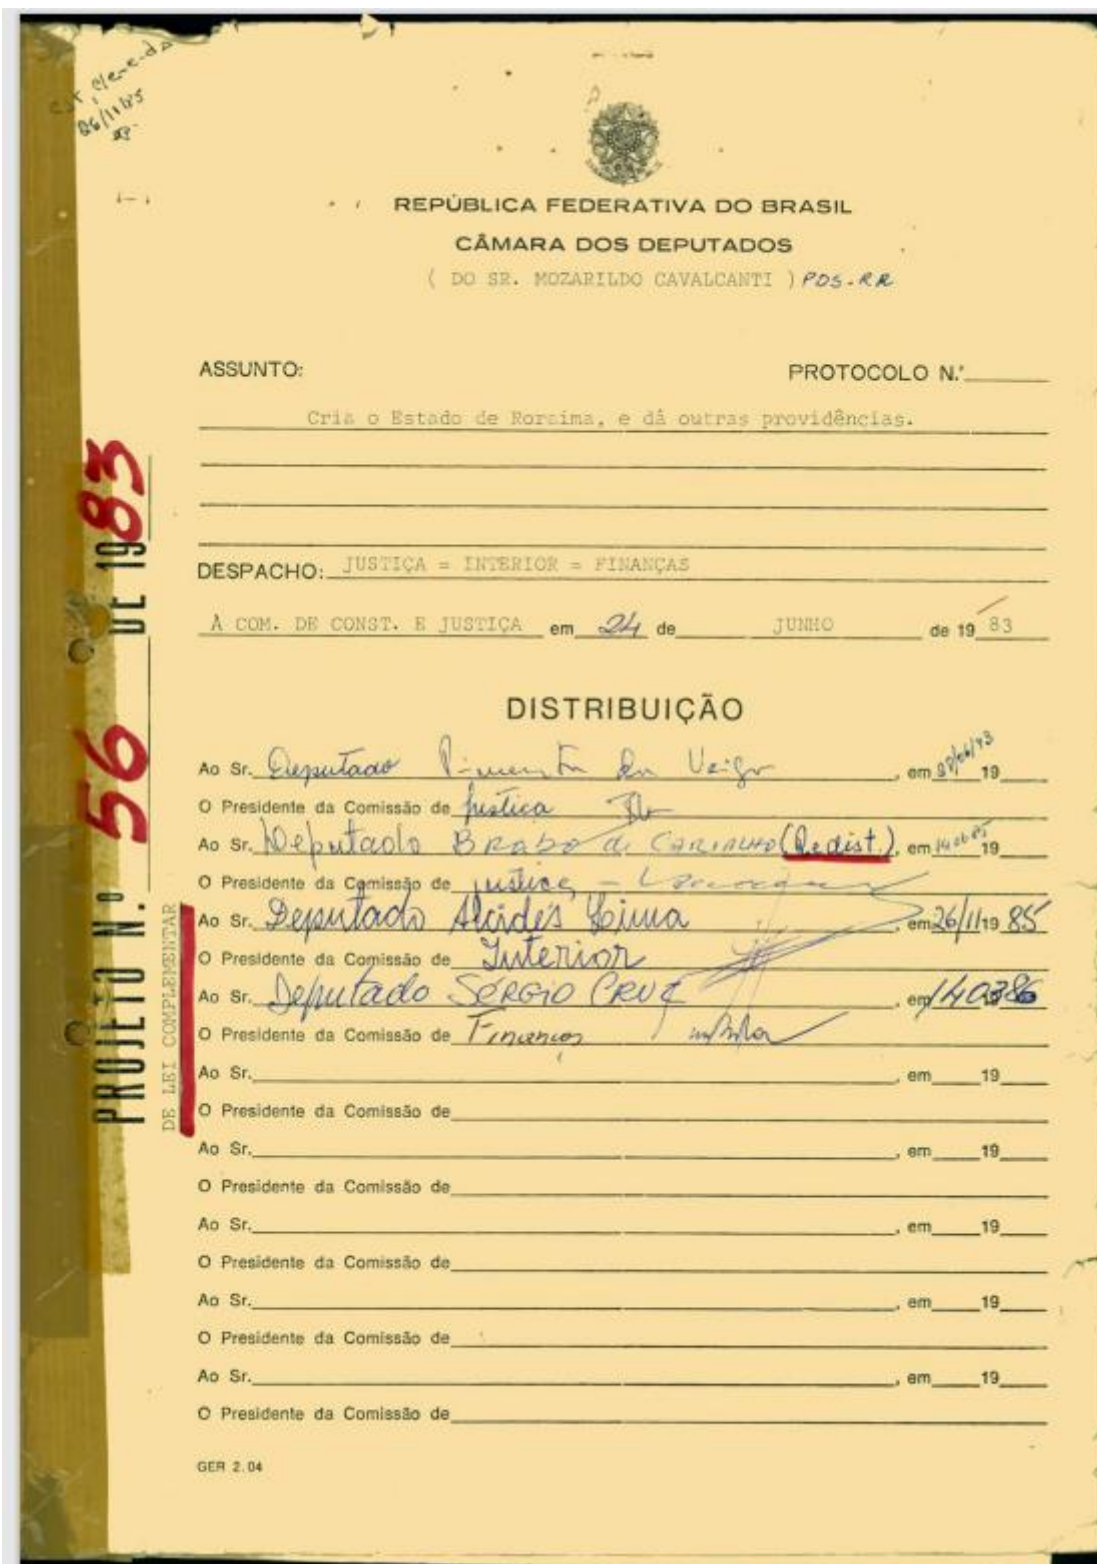 26/11/85
REPÚBLICA FEDERATIVA DO BRASIL
CÂMARA DOS DEPUTADOS
( DO SR. MOZARILDO CAVALCANTI ) PDS-RR
ASSUNTO: PROTOCOLO N.º
Cria o Estado de Roraima, e dá outras providências.
DESPACHO: JUSTIÇA = INTERIOR = FINANÇAS
À COM. DE CONST. E JUSTIÇA em 24 de JUNHO de 19 83
DISTRIBUIÇÃO
Ao Sr. Deputado Pimenta da Veiga, em 19
O Presidente da Comissão de Justiça
Ao Sr. Deputado BRABO de CARVALHO (Redist.), em 19
O Presidente da Comissão de justiça
Ao Sr. Deputado Alcides Lima, em 26/11 19 85
O Presidente da Comissão de Interior
Ao Sr. Deputado SÉRGIO CRUZ, em 140386
O Presidente da Comissão de Finanças
Ao Sr. , em 19
O Presidente da Comissão de
Ao Sr. , em 19
O Presidente da Comissão de
Ao Sr. , em 19
O Presidente da Comissão de
Ao Sr. , em 19
O Presidente da Comissão de
Ao Sr. , em 19
O Presidente da Comissão de
GER 2.04
PROJETO N.º 56 DE 1983
DE LEI COMPLEMENTAR